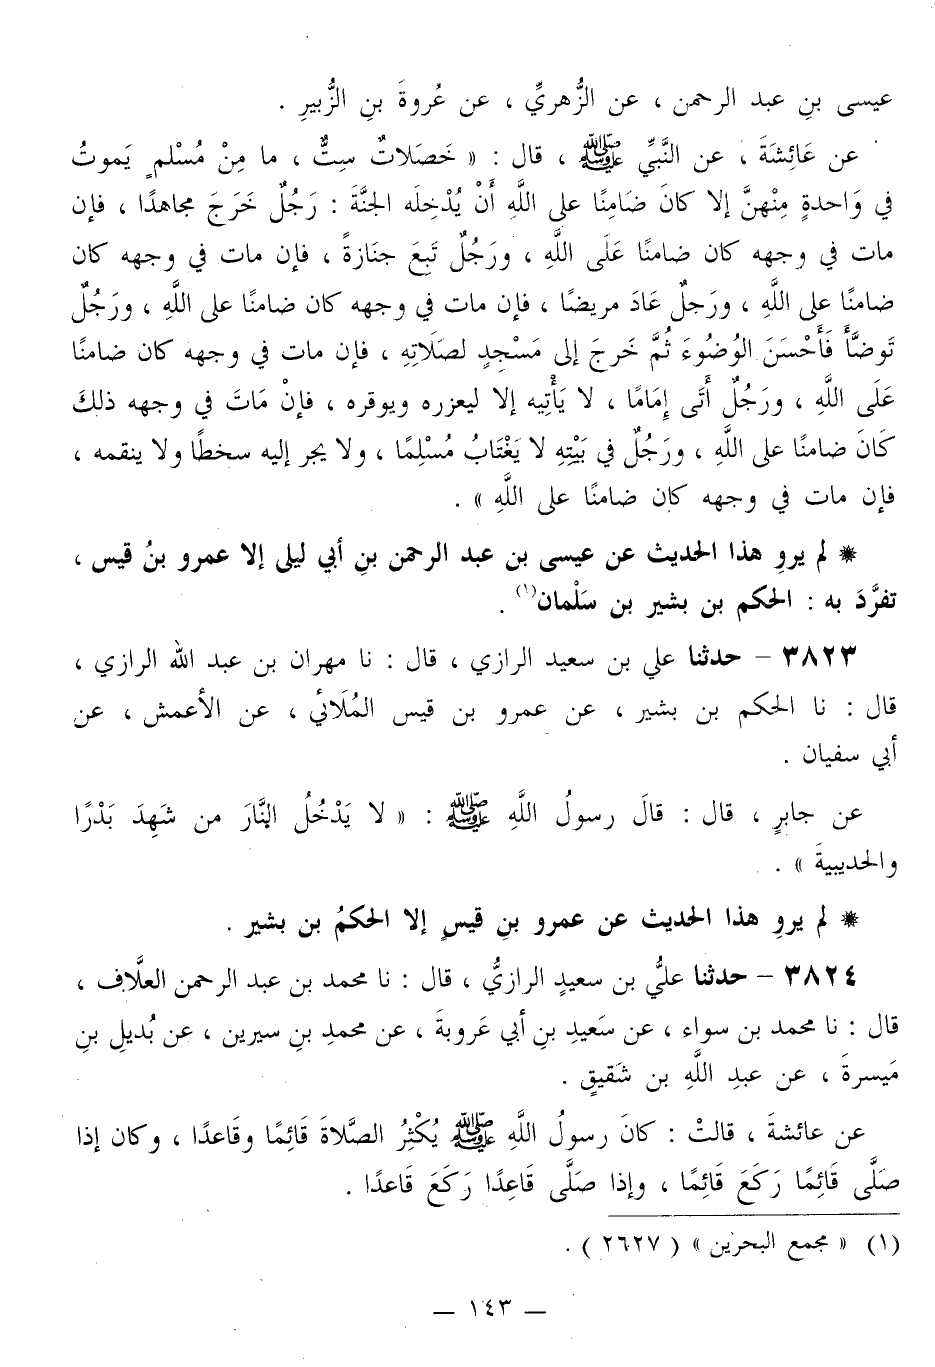 عيسى بنِ عبد الرحمن ، عن الزُّهريِّ ، عن عُروةَ بنِ الزُّبيرِ .
عن عَائِشَةَ ، عن النَّبيِّ ﷺ ، قال : « خَصَلاتٌ سِتٌّ ، ما مِنْ مُسْلمٍ يَموتُ
في وَاحدةٍ مِنْهنَّ إلا كانَ ضَامِنًا على اللَّهِ أَنْ يُدْخِلَه الجنَّةَ : رَجُلٌ خَرَجَ مجاهدًا ، فإن
مات في وجهه كان ضامنًا عَلَى اللَّهِ ، ورَجُلٌ تَبِعَ جنَازةً ، فإن مات في وجهه كان
ضامنًا على اللَّهِ ، ورَجلٌ عَادَ مريضًا ، فإن مات في وجهه كان ضامنًا على اللَّهِ ، ورَجُلٌ
تَوضَّأَ فَأَحْسَنَ الوُضُوءَ ثُمَّ خَرجَ إلى مَسْجدٍ لصَلَاتِهِ ، فإن مات في وجهه كان ضامنًا
عَلَى اللَّهِ ، ورَجُلٌ أَتَى إِمَامًا ، لا يَأْتِيه إلا ليعزره ويوقره ، فإنْ مَاتَ في وجهه ذلكَ
كَانَ ضامنًا على اللَّهِ ، ورَجُلٌ في بَيْتِهِ لا يَغْتَابُ مُسْلِمًا ، ولا يجر إليه سخطًا ولا ينقمه ،
فإن مات في وجهه كان ضامنًا على اللَّهِ » .
* لم يروِ هذا الحديث عن عيسى بن عبد الرحمن بنِ أبي ليلى إلا عمرو بنُ قيس ،
تفرَّدَ به : الحكم بن بشير بن سَلْمان(١) .
٣٨٢٣ – حدثنا علي بن سعيد الرازي ، قال : نا مهران بن عبد الله الرازي ،
قال : نا الحكم بن بشير ، عن عمرو بن قيس المُلَائي ، عن الأعمش ، عن
أبي سفيان .
عن جابرٍ ، قال : قالَ رسولُ اللَّهِ ﷺ : « لا يَدْخُلُ النَّارَ من شَهِدَ بَدْرًا
والحديبيةَ » .
* لم يروِ هذا الحديث عن عمرو بنِ قيسٍ إلا الحكمُ بن بشير .
٣٨٢٤ – حدثنا عليُّ بن سعيدٍ الرازيُّ ، قال : نا محمد بن عبد الرحمن العلَّاف ،
قال : نا محمد بن سواء ، عن سَعيدِ بنِ أبي عَروبةَ ، عن محمدِ بنِ سيرين ، عن بُديلِ بنِ
مَيسرةَ ، عن عبدِ اللَّهِ بن شَقيقٍ .
عن عائشةَ ، قالتْ : كانَ رسولُ اللَّهِ ﷺ يُكْثِرُ الصَّلاةَ قَائِمًا وقَاعدًا ، وكان إذا
صَلَّى قَائِمًا رَكَعَ قَائِمًا ، وإذا صَلَّى قَاعِدًا رَكَعَ قَاعدًا .
(١) « مجمع البحرين » ( ٢٦٢٧ ) .
— ١٤٣ —